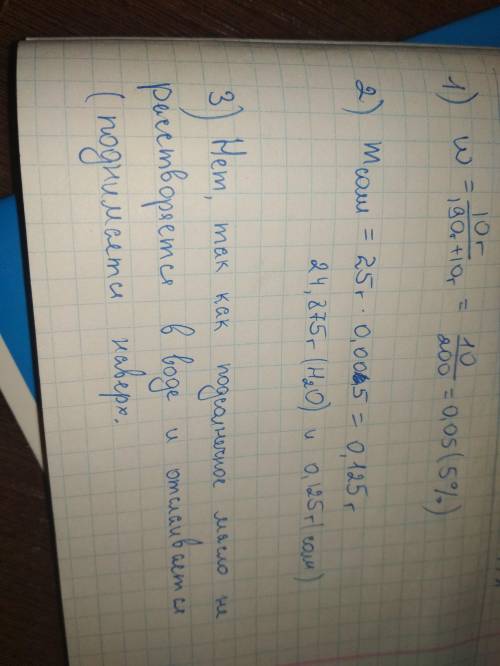 1) W = 10г / 190г + 10г = 10 / 200 = 0,05 (5%)
2) m соли = 25г · 0,005 = 0,125г
24,875г (H₂O) и 0,125г (соли)
3) Нет, так как подсолнечное масло не
расстворяется в воде и отслаивается
(поднимается наверх.